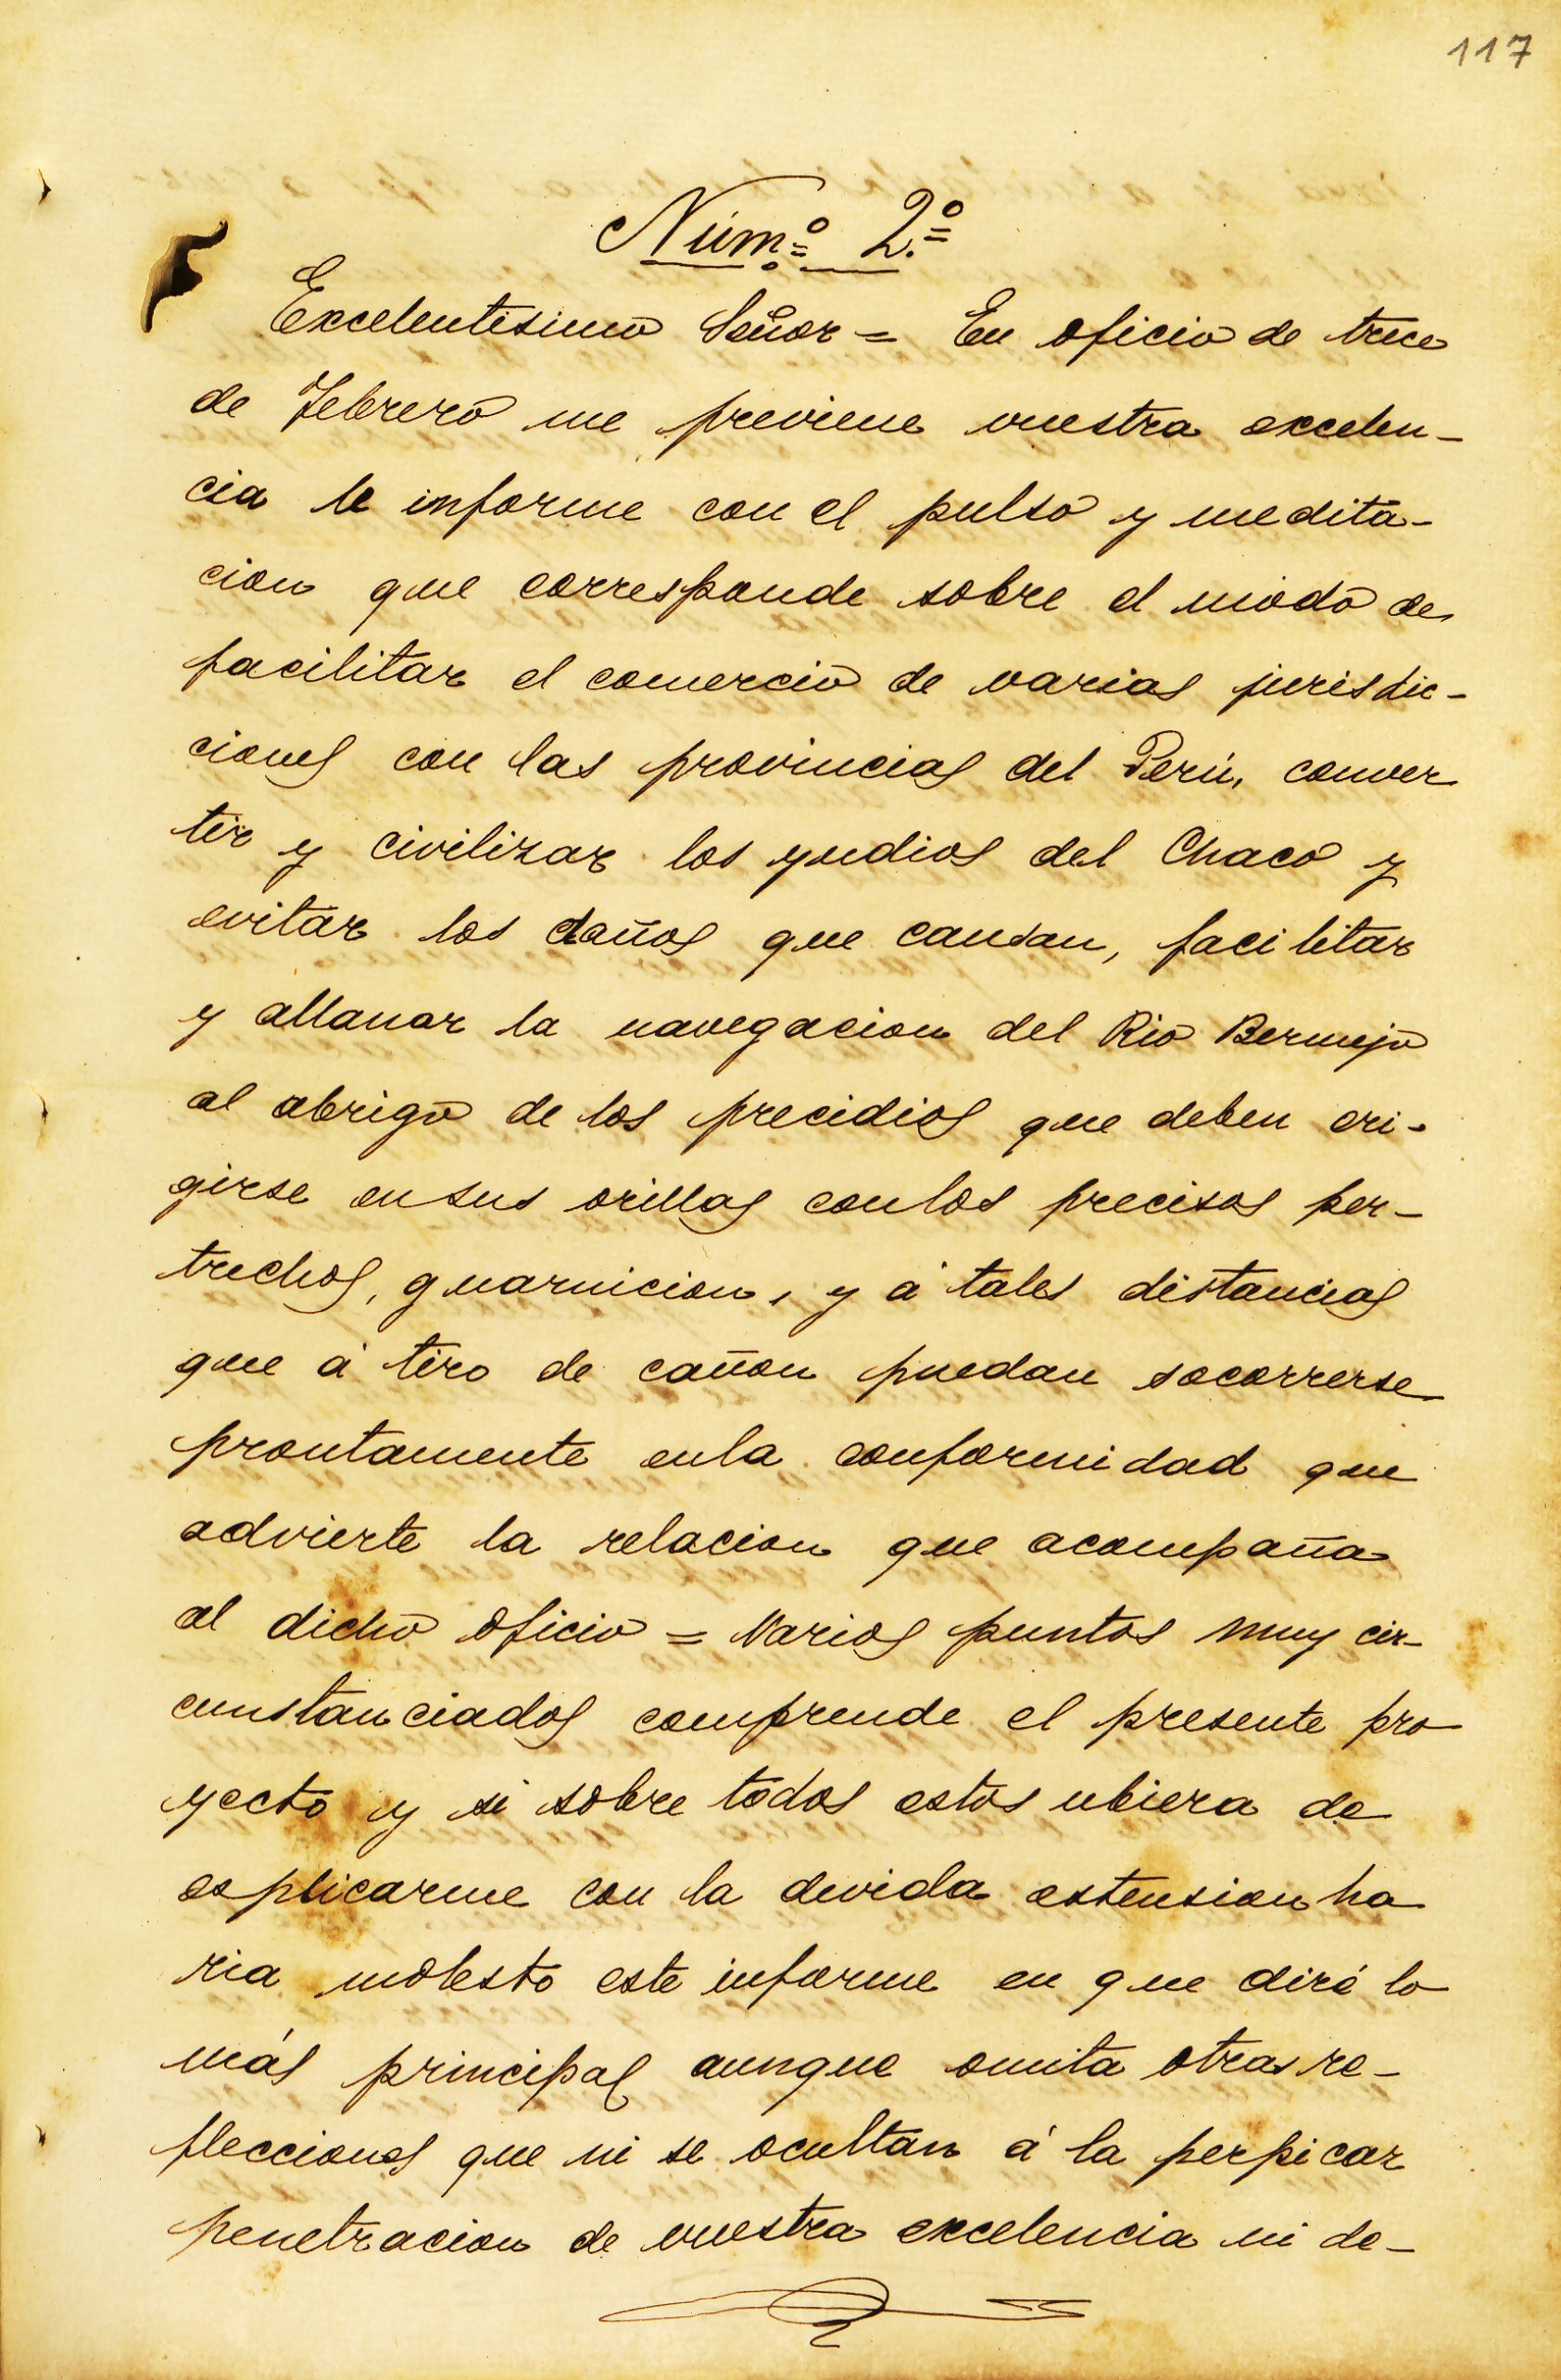 117
Núm.º 2.º
Excelentisimo Señor = En oficio de trece
de Febrero me previene vuestra excelen-
cia le informe con el pulso y medita-
cion que corresponde sobre el modo de
facilitar el comercio de varias jurisdic-
ciones con las provincias del Perú, conver
tir y civilizar los yndios del Chaco y
evitar los daños que causan, facilitar
y allanar la navegacion del Rio Bermejo
al abrigo de los precidios que deben eri-
girse en sus orillas con los precisos per-
trechos, guarnicion, y á tales distancias
que á tiro de cañon puedan socorrerse
prontamente en la conformidad que
advierte la relacion que acompaña
al dicho oficio = Varios puntos muy cir-
cunstanciados comprende el presente pro
yecto y si sobre todos estos ubiera de
esplicarme con la devida estension ha
ria molesto este informe en que diré lo
más principal aunque omita otras re-
flecciones que ni se ocultan á la perpicaz
penetracion de vuestra excelencia ni de-